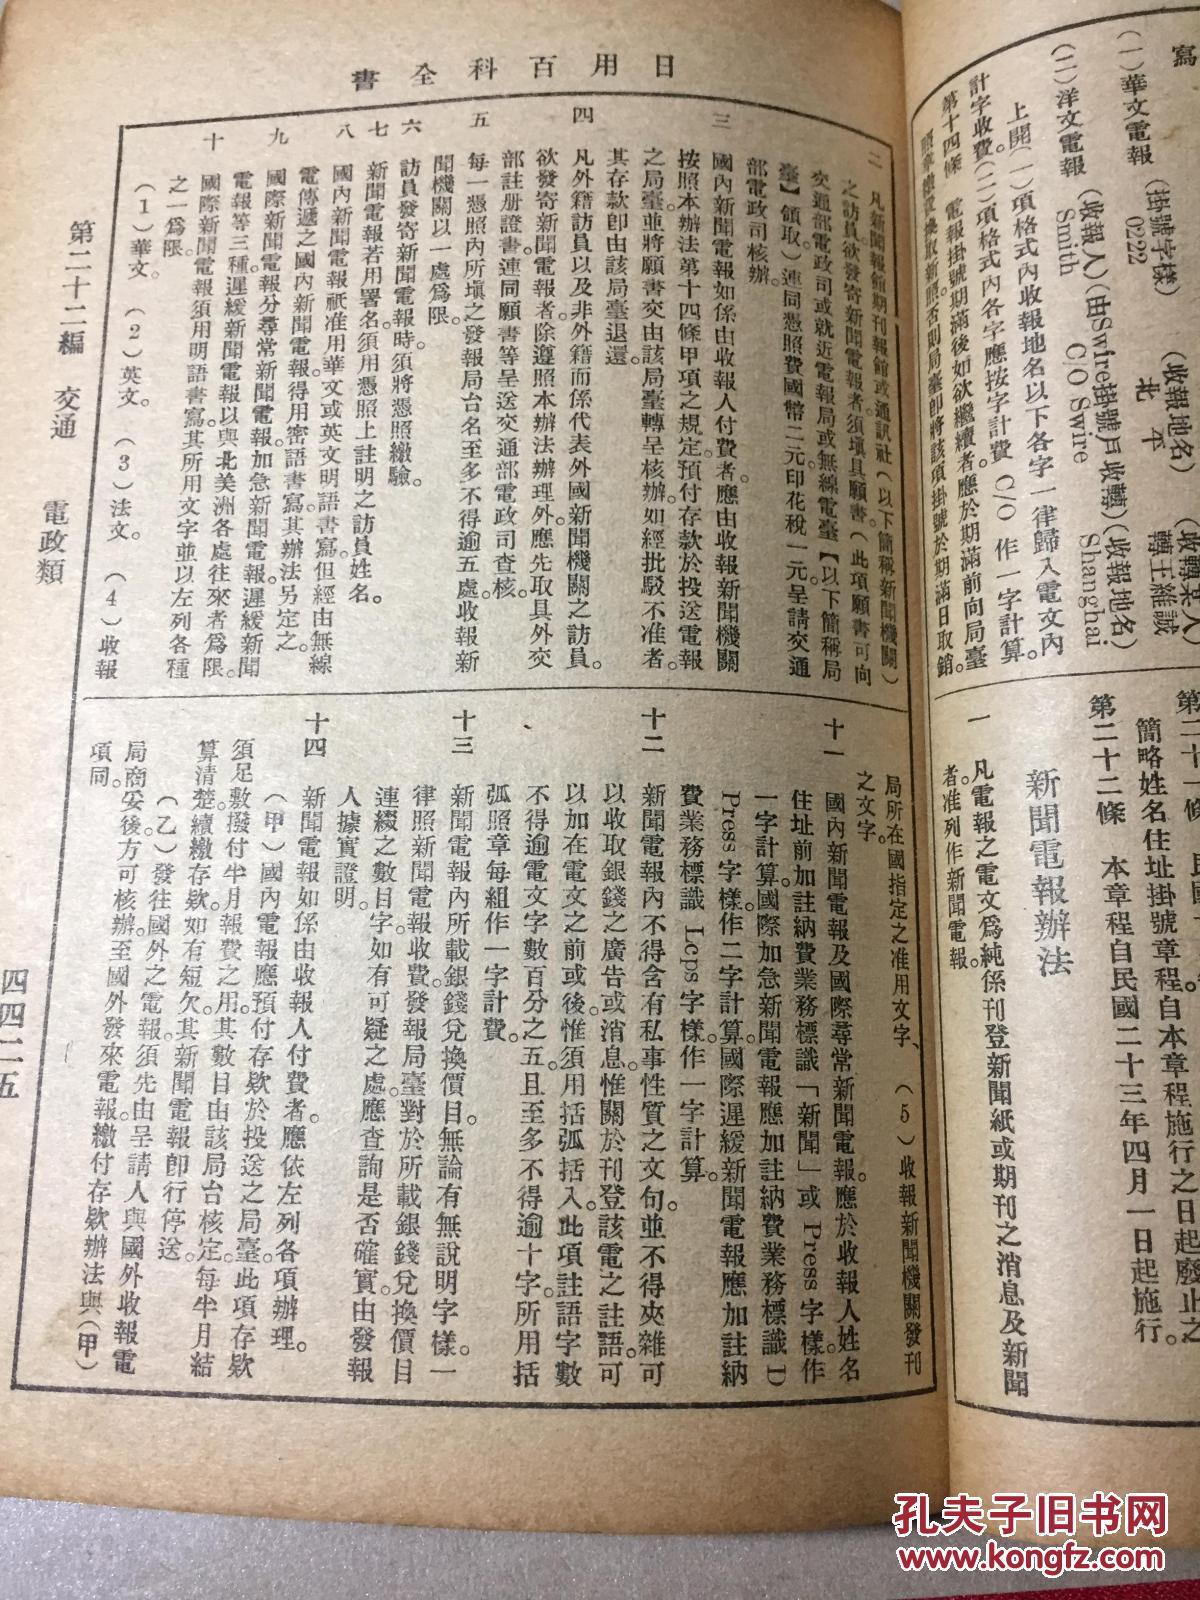 寫
(一)華文電報 (掛號字樣) (收報地名) (收轉某人)
0222 北平 轉王維誠
(二)洋文電報 (收報人)(由Swire掛號戶收轉)(收報地名)
Smith C/O Swire Shanghai
上開(一)項格式內收報地名以下各字一律歸入電文內
計字收費。(二)項格式內各字應按字計費 C/O 作一字計算。
第十四條 電報掛號期滿後如欲繼續者應於期滿前向局臺
照章繳費換取新照否則局臺即將該項掛號於期滿日取銷。
簡略姓名住址掛號章程自本章程施行之日起廢止之
第二十二條 本章程自民國二十三年四月一日起施行。
新聞電報辦法
一 凡電報之電文爲純係刊登新聞紙或期刊之消息及新聞
者。准列作新聞電報。
日用百科全書
二 凡新聞報館期刊報館或通訊社(以下簡稱新聞機關)
之訪員欲發寄新聞電報者須塡具願書。(此項願書可向
交通部電政司或就近電報局或無線電臺【以下簡稱局
臺】領取)連同憑照費國幣二元印花稅一元呈請交通
部電政司核辦。
三 國內新聞電報如係由收報人付費者應由收報新聞機關
按照本辦法第十四條甲項之規定預付存款於投送電報
之局臺。並將願書交由該局臺轉呈核辦。如經批駁不准者。
其存款卽由該局臺退還。
四 凡外籍訪員以及非外籍而係代表外國新聞機關之訪員。
欲發寄新聞電報者除遵照本辦法辦理外。應先取具外交
部註册證書。連同願書等呈送交通部電政司查核。
五 每一憑照內所塡之發報局台名至多不得逾五處。收報新
聞機關以一處爲限。
六 訪員發寄新聞電報時須將憑照繳驗。
七 新聞電報若用署名。須用憑照上註明之訪員姓名。
八 國內新聞電報祇准用華文或英文明語書寫。但經由無線
電傳遞之國內新聞電報得用密語書寫。其辦法另定之。
九 國際新聞電報分尋常新聞電報。加急新聞電報。遲緩新聞
電報等三種。遲緩新聞電報以與北美洲各處往來者爲限。
十 國際新聞電報須用明語書寫。其所用文字並以左列各種
之一爲限。
(1)華文。 (2)英文。 (3)法文。 (4)收報
局所在國指定之准用文字、 (5)收報新聞機關發刊
之文字。
十一 國內新聞電報及國際尋常新聞電報。應於收報人姓名
住址前加註納費業務標識「新聞」或 Press 字樣作
一字計算。國際加急新聞電報應加註納費業務標識 D
Press 字樣作二字計算。國際遲緩新聞電報應加註納
費業務標識 Lcps 字樣。作一字計算。
十二 新聞電報內不得含有私事性質之文句。並不得夾雜可
以收取銀錢之廣告或消息。惟關於刊登該電之註語。可
以加在電文之前或後。惟須用括弧括入。此項註語字數
不得逾電文字數百分之五。且至多不得逾十字。所用括
弧照章每組作一字計費。
十三 新聞電報內所載銀錢兌換價目。無論有無說明字樣。一
律照新聞電報收費。發報局臺對於所載銀錢兌換價目
連綴之數目字如有可疑之處。應查詢是否確實。由發報
人據實證明。
十四 新聞電報如係由收報人付費者。應依左列各項辦理。
(甲)國內電報應預付存欵於投送之局臺。此項存欵
須足敷撥付半月報費之用。其數目由該局台核定。每半月結
算清楚。續繳存欵如有短欠。其新聞電報卽行停送。
(乙)發往國外之電報須先由呈請人與國外收報電
局商妥後方可核辦。至國外發來電報。繳付存欵辦法與(甲)
項同。
第二十二編 交通 電政類 四四二五
孔夫子旧书网
www.kongfz.com